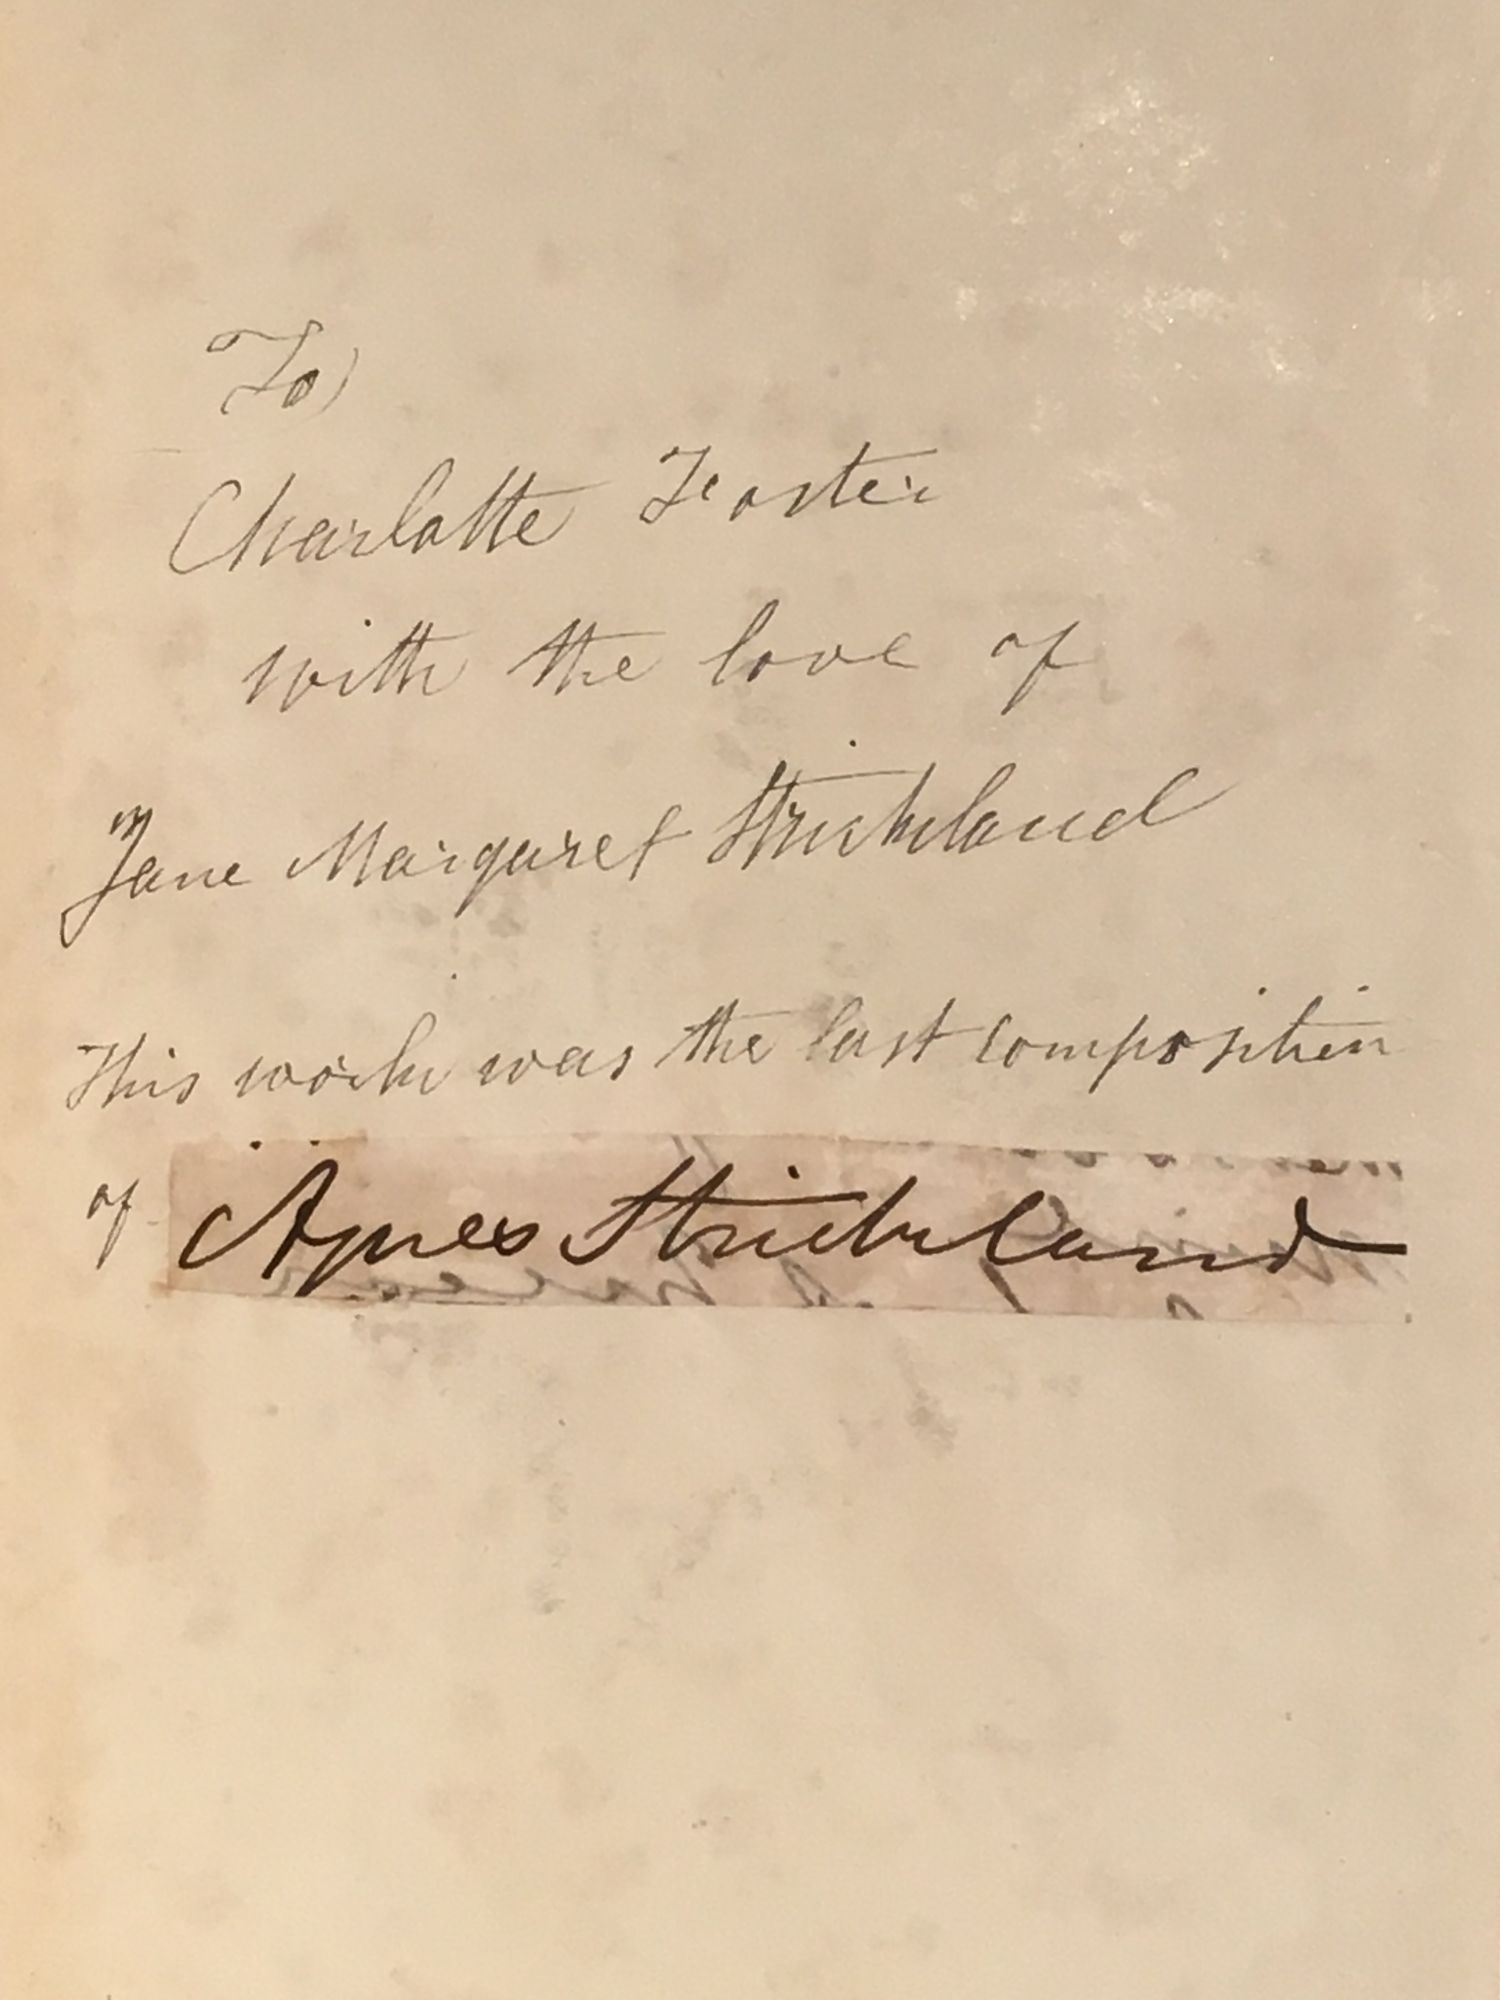 To
Charlotte Foster
with the love of
Jane Margaret Strickland
This work was the last composition
of Agnes Strickland